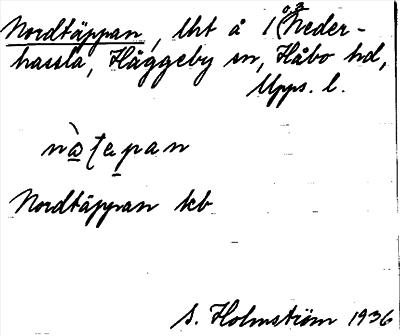 Nordtäppan, lht å 1 Neder-
hassla, Häggeby sn, Håbo hd,
Upps. l.
nà̱ʈe̱pan
Nordtäppan kb
S. Holmström 1936